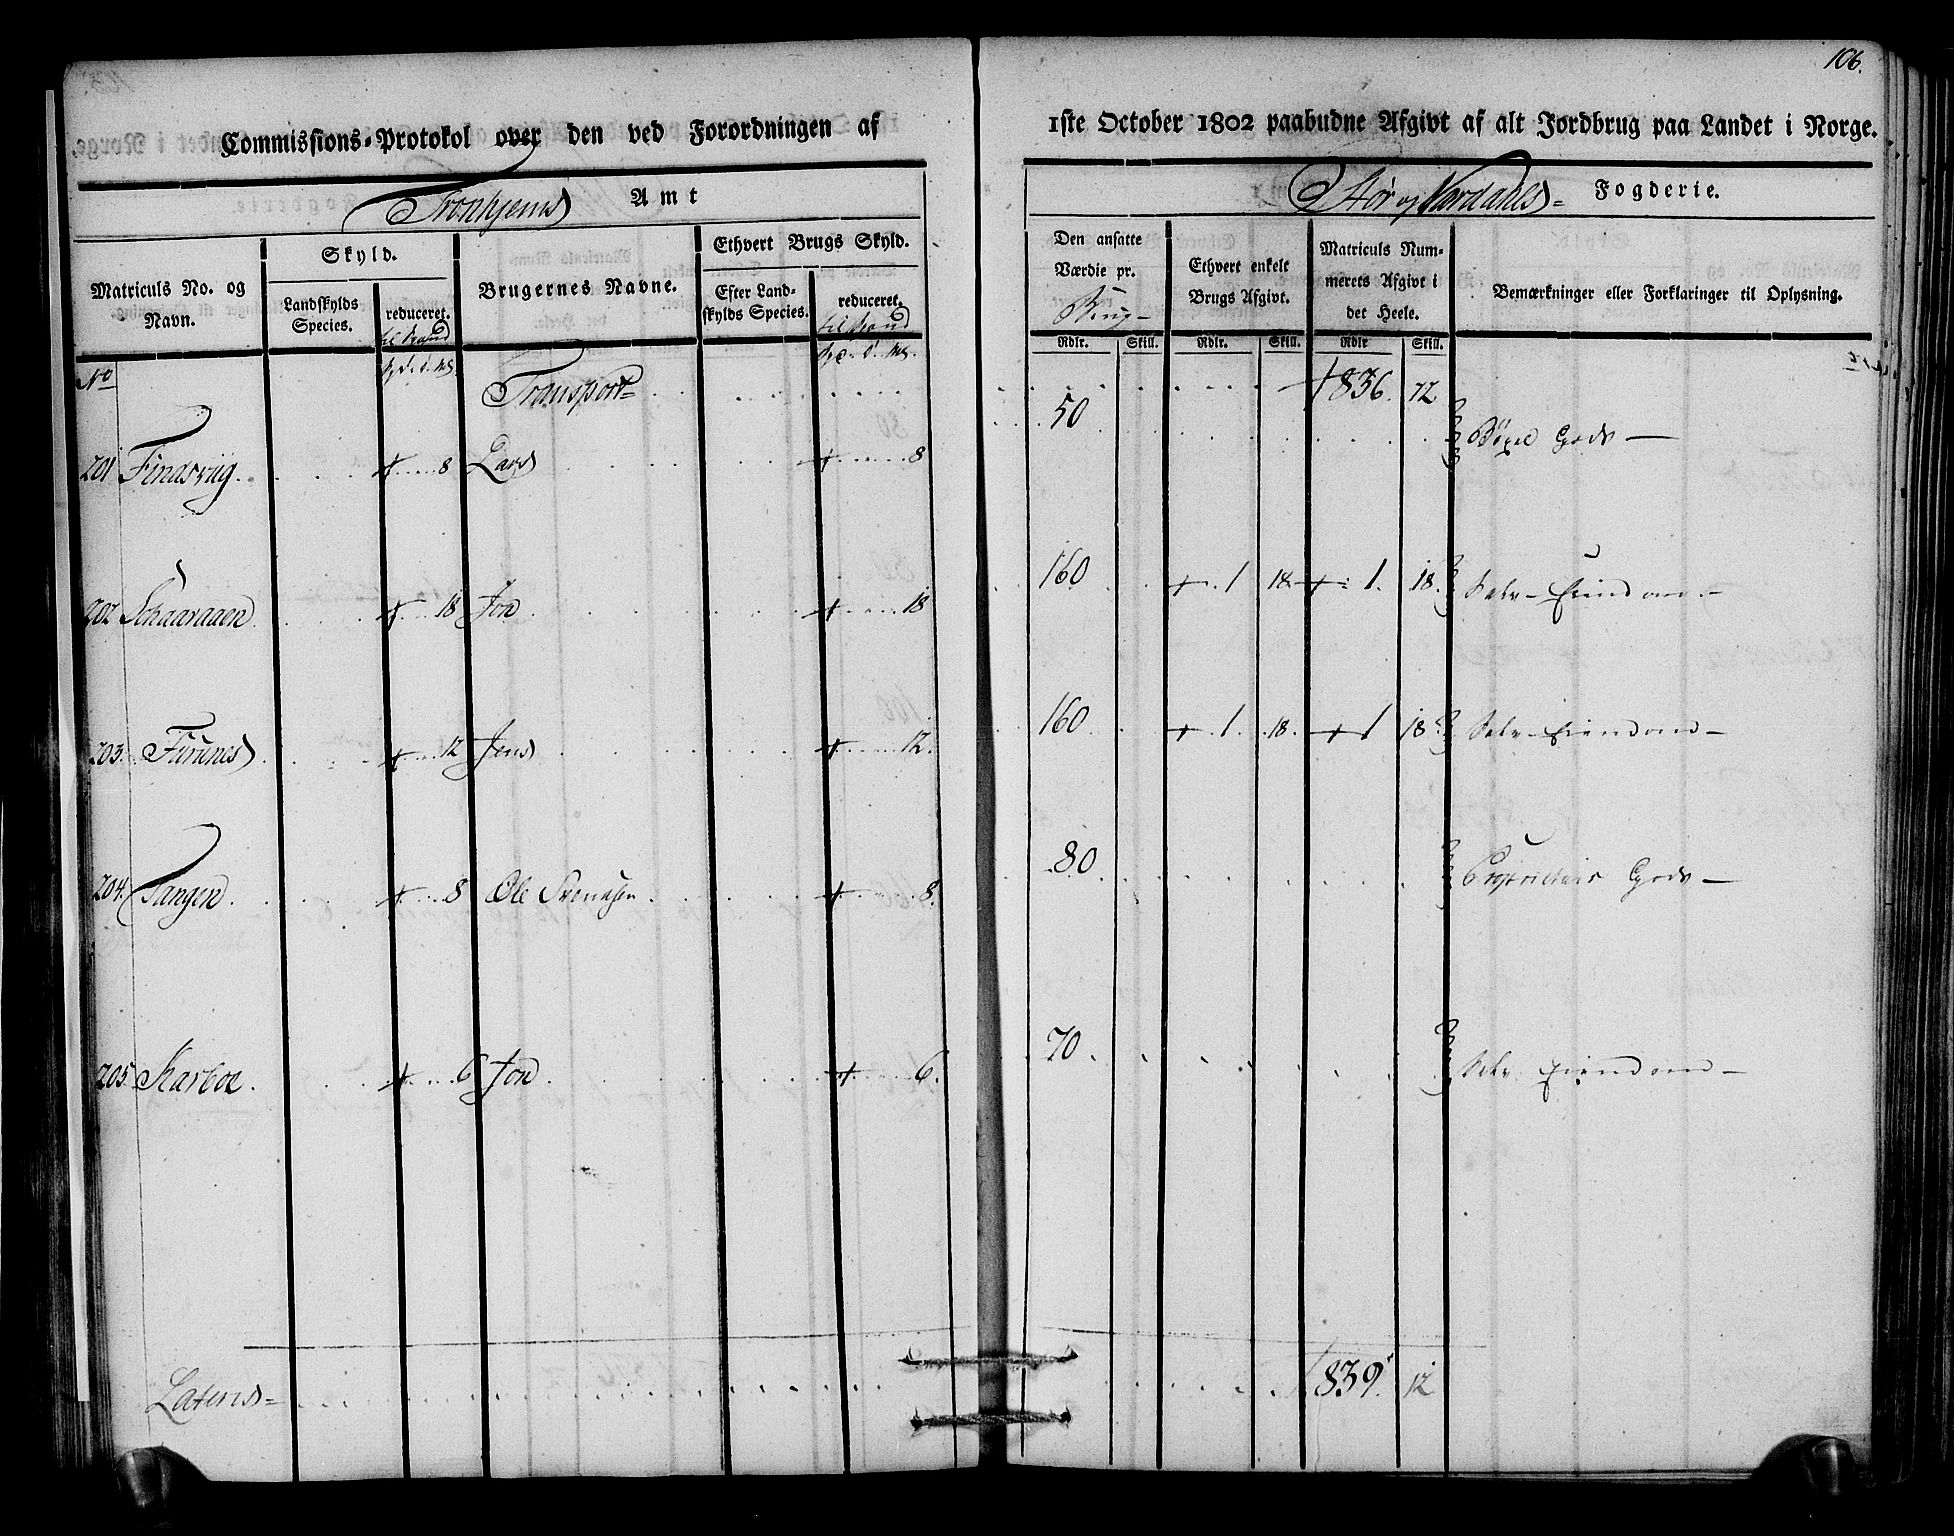 106.
Commissions-Protokol over den ved Forordningen af 1ste October 1802 paabudne Afgivt af alt Jordbrug paa Landet i Norge.
Tronhjems Amt
Stør og Værdahls Fogderie.
Matriculs No. og Navn.
Skyld.
Landskylds Species.
reduceret.
Brugernes Navne.
Ethvert Brugs Skyld.
Efter Landskylds Species.
reduceret.
Den ansatte Værdie pr. Brug
Ethvert enkelt Brugs Afgivt.
Matriculs Nummerets Afgivt i det Heele.
Bemærkninger eller Forklaringer til Oplysning.
Rdlr. Skill. Rdlr. Skill. Rdlr Skill.
No
Transport 836. 72
201 Findsviig 8 Lars 8 50 Gods
202 Schaaraaen 18 Jon 18 160 1 18 1. 18 Selv-Eiendom
203. Furunes 12 Jens 12. 160 1. 18. 1 18 Selv-Eiendom
204. Tangen 8 Ole Svendsen 8. 80 Proprietair Gods
205. Karboe 6 Jon 6. 70 Selv Eiendom
Laterus 839. 12